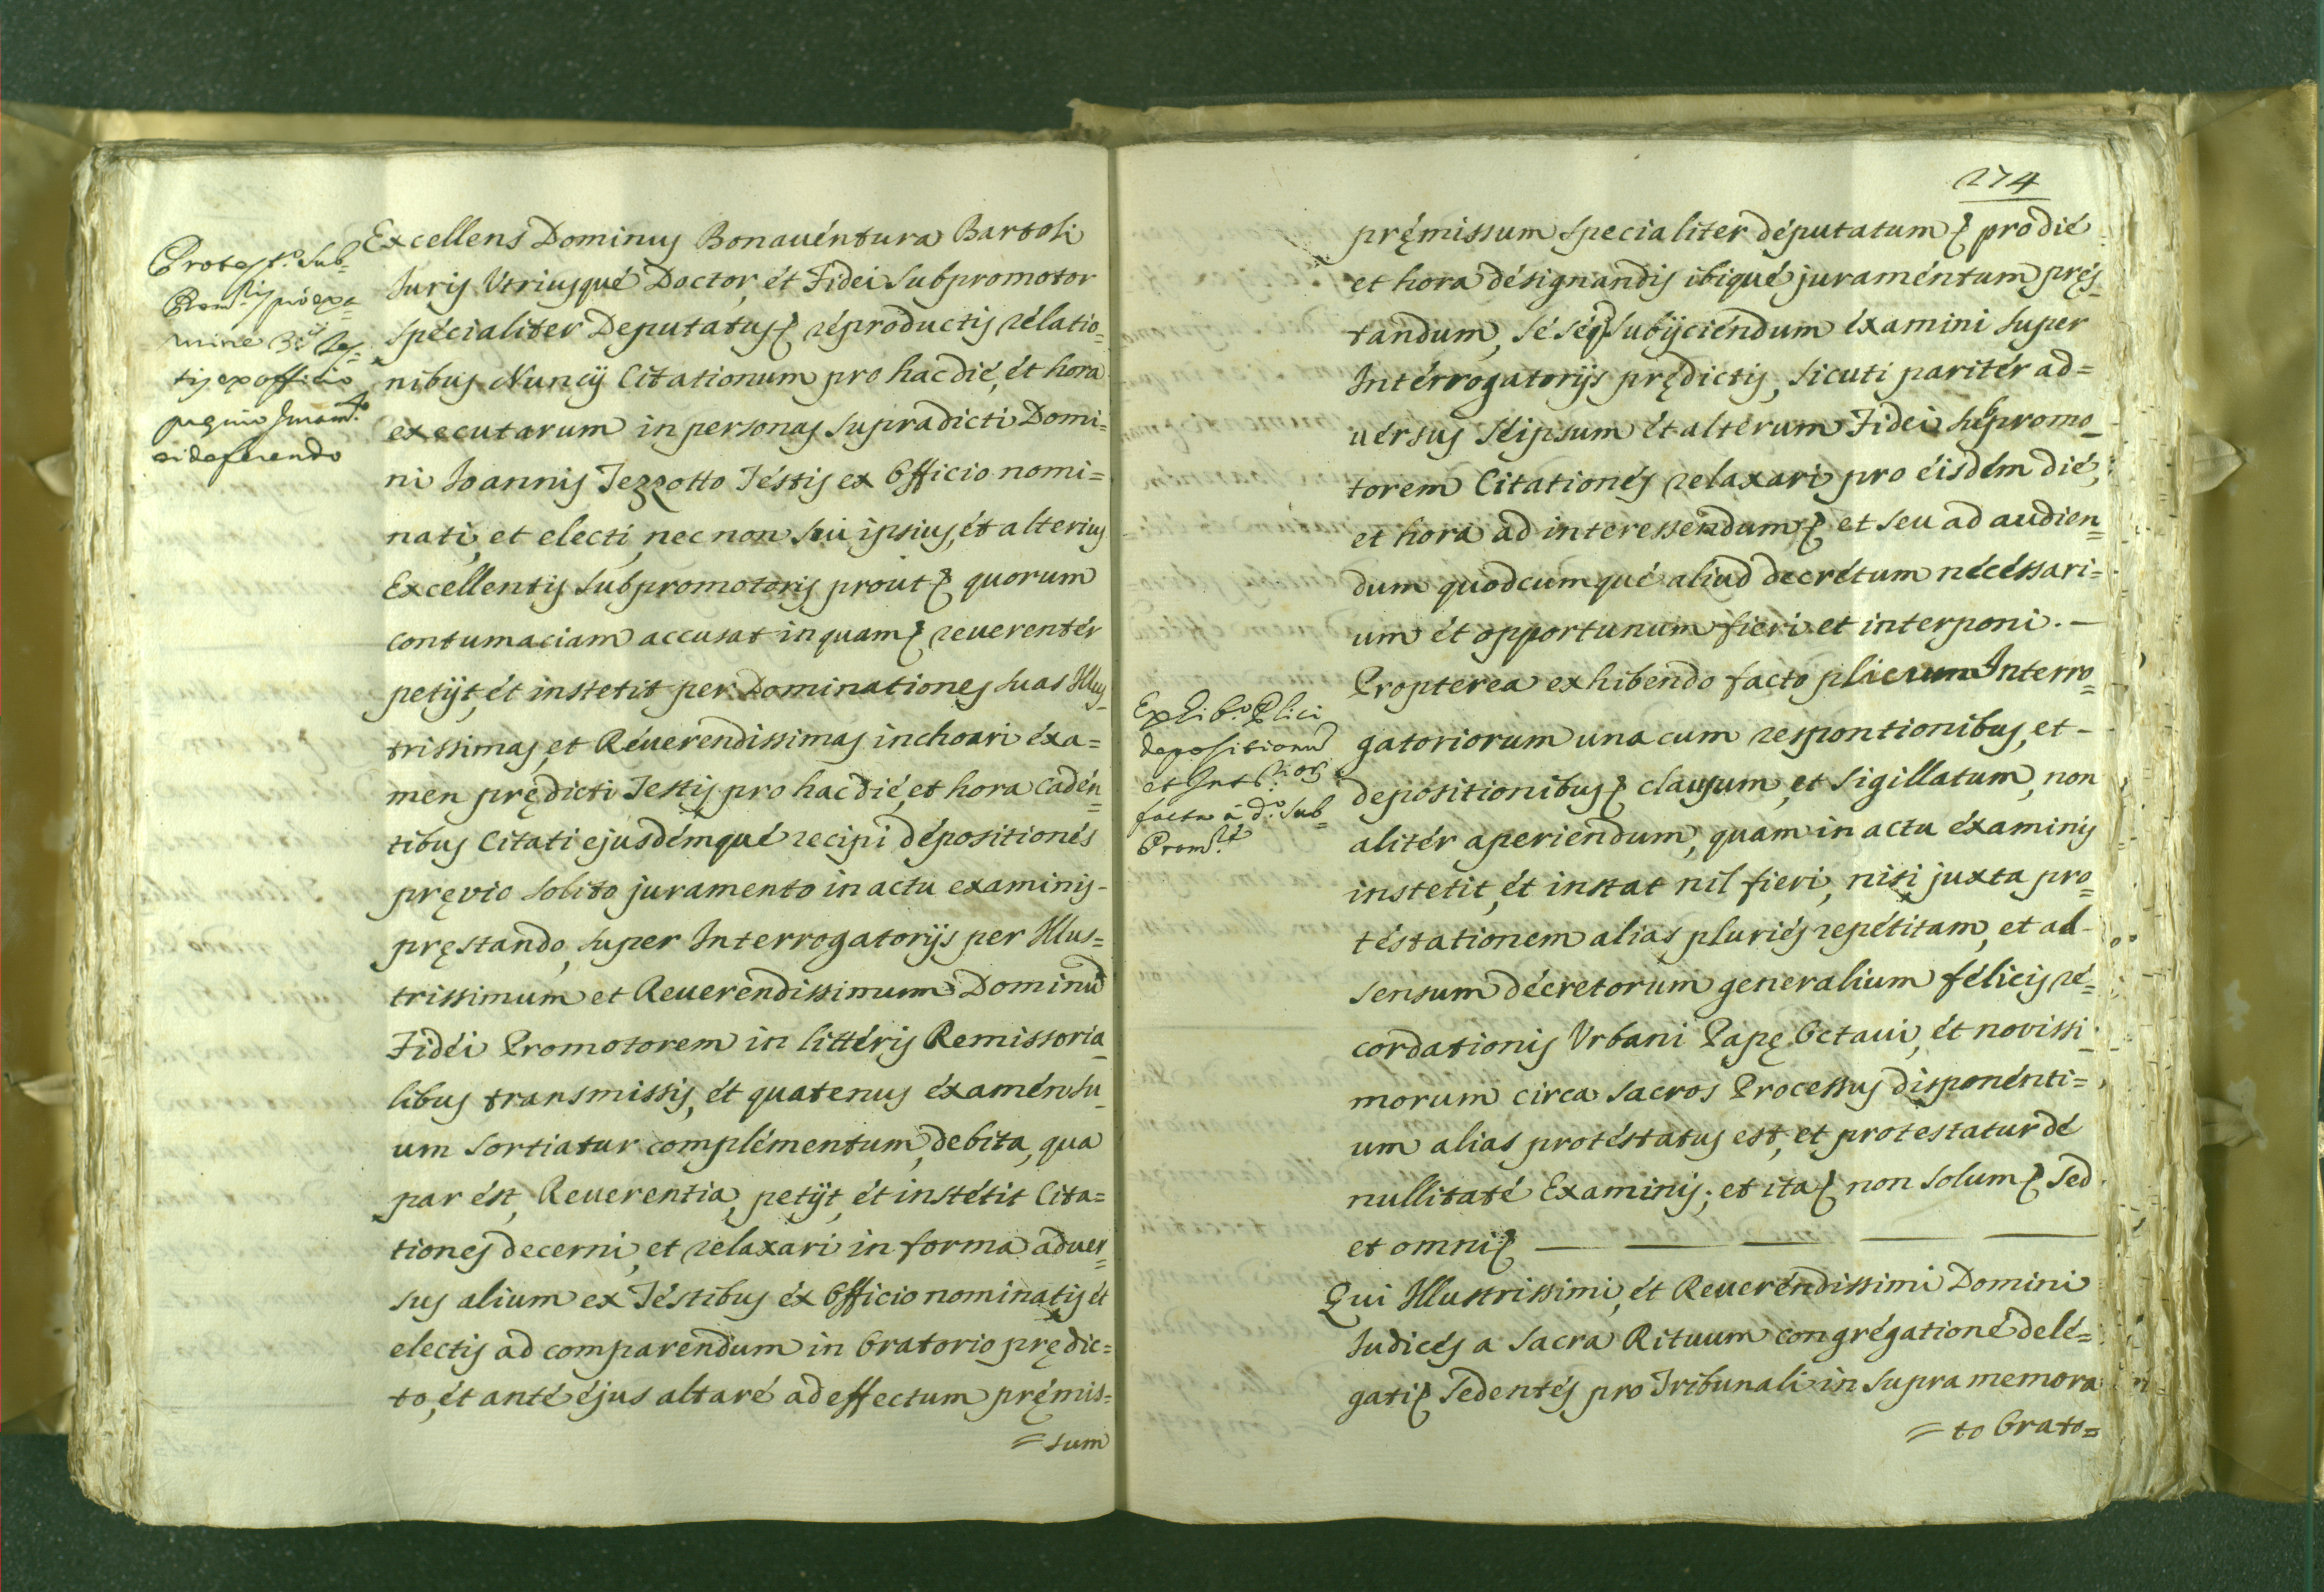 Protest.º Sub=
Prom.ris pro exa=
mine 3.ii Tes=
tis ex officio
preuio Juram.to
ei deferendo
Excellens Dominus Bonauentura Bartoli
Juris Vtriusque Doctor, et Fidei Subpromotor
specialiter Deputatus reproductis relatio=
nibus Nuncij Citationum pro hac die, et hora
executarum in personas supradicti Domi=
ni Joannis Tezzotto Testis ex Officio nomi=
nati, et electi, nec non sui ipsius, et alterius
Excellentis Subpromotoris prout quorum
contumaciam accusat in quam reuerenter
petijt, et instetit per Dominationes suas Illus=
trissimas, et Reuerendissimas inchoari exa=
men prędicti Testis pro hac die, et hora caden=
tibus Citati ejusdemque recipi depositiones
pręvio solito juramento in actu examinis-
pręstando, super Interrogatorijs per Illus=
trissimum et Reuerendissimum Dominũ
Fidei Promotorem in litteris Remissoria=
libus transmissis, et quatenus examen su=
um sortiatur complementum, debita, qua
par est, Reuerentia, petijt, et instetit Cita=
tiones decerni, et relaxari in forma aduer=
sus alium ex Testibus ex Officio nominatis et
electis ad comparendum in Oratorio prędic=
to, et ante ejus altare ad effectum pręmis=
= sum
274
pręmissum specialiter deputatum pro die
et hora designandis ibique juramentum pręs=
tandum, se seq subijciendum examini super
Interrogatorijs prędictis, sicuti pariter ad=
uersus seipsum et alterum Fidei subpromo=
torem Citationes relaxari pro eisdem die,
et hora ad interessendum, et seu ad audien=
dum quodcumque aliud decretum necessari=
um et opportunum fieri et interponi. —
Propterea exhibendo facto plicum Interro=
gatoriorum una cum respontionibus, et -
depositionibus clausum, et sigillatum, non
aliter aperiendum, quam in actu examinis
instetit, et instat nil fieri, nisi juxta pro=
testationem alias pluries repetitam, et ad
sensum decretorum generalium felicis re=
cordationis Vrbani Papę Octaui, et novissi=
morum circa sacros Processus disponenti=
um alias protestatus est, et protestatur de
nullitate Examinis; et ita non solum sed
et omni
Exhib.º Plici
depositionũ
et Int.rior.
facta à d.º Sub=
Prom.re
Qui Illustrissimi, et Reuerendissimi Domini
Judices a Sacra Rituum congregatione dele=
gati Sedentes pro Tribunali in supra memora
= to Orato=